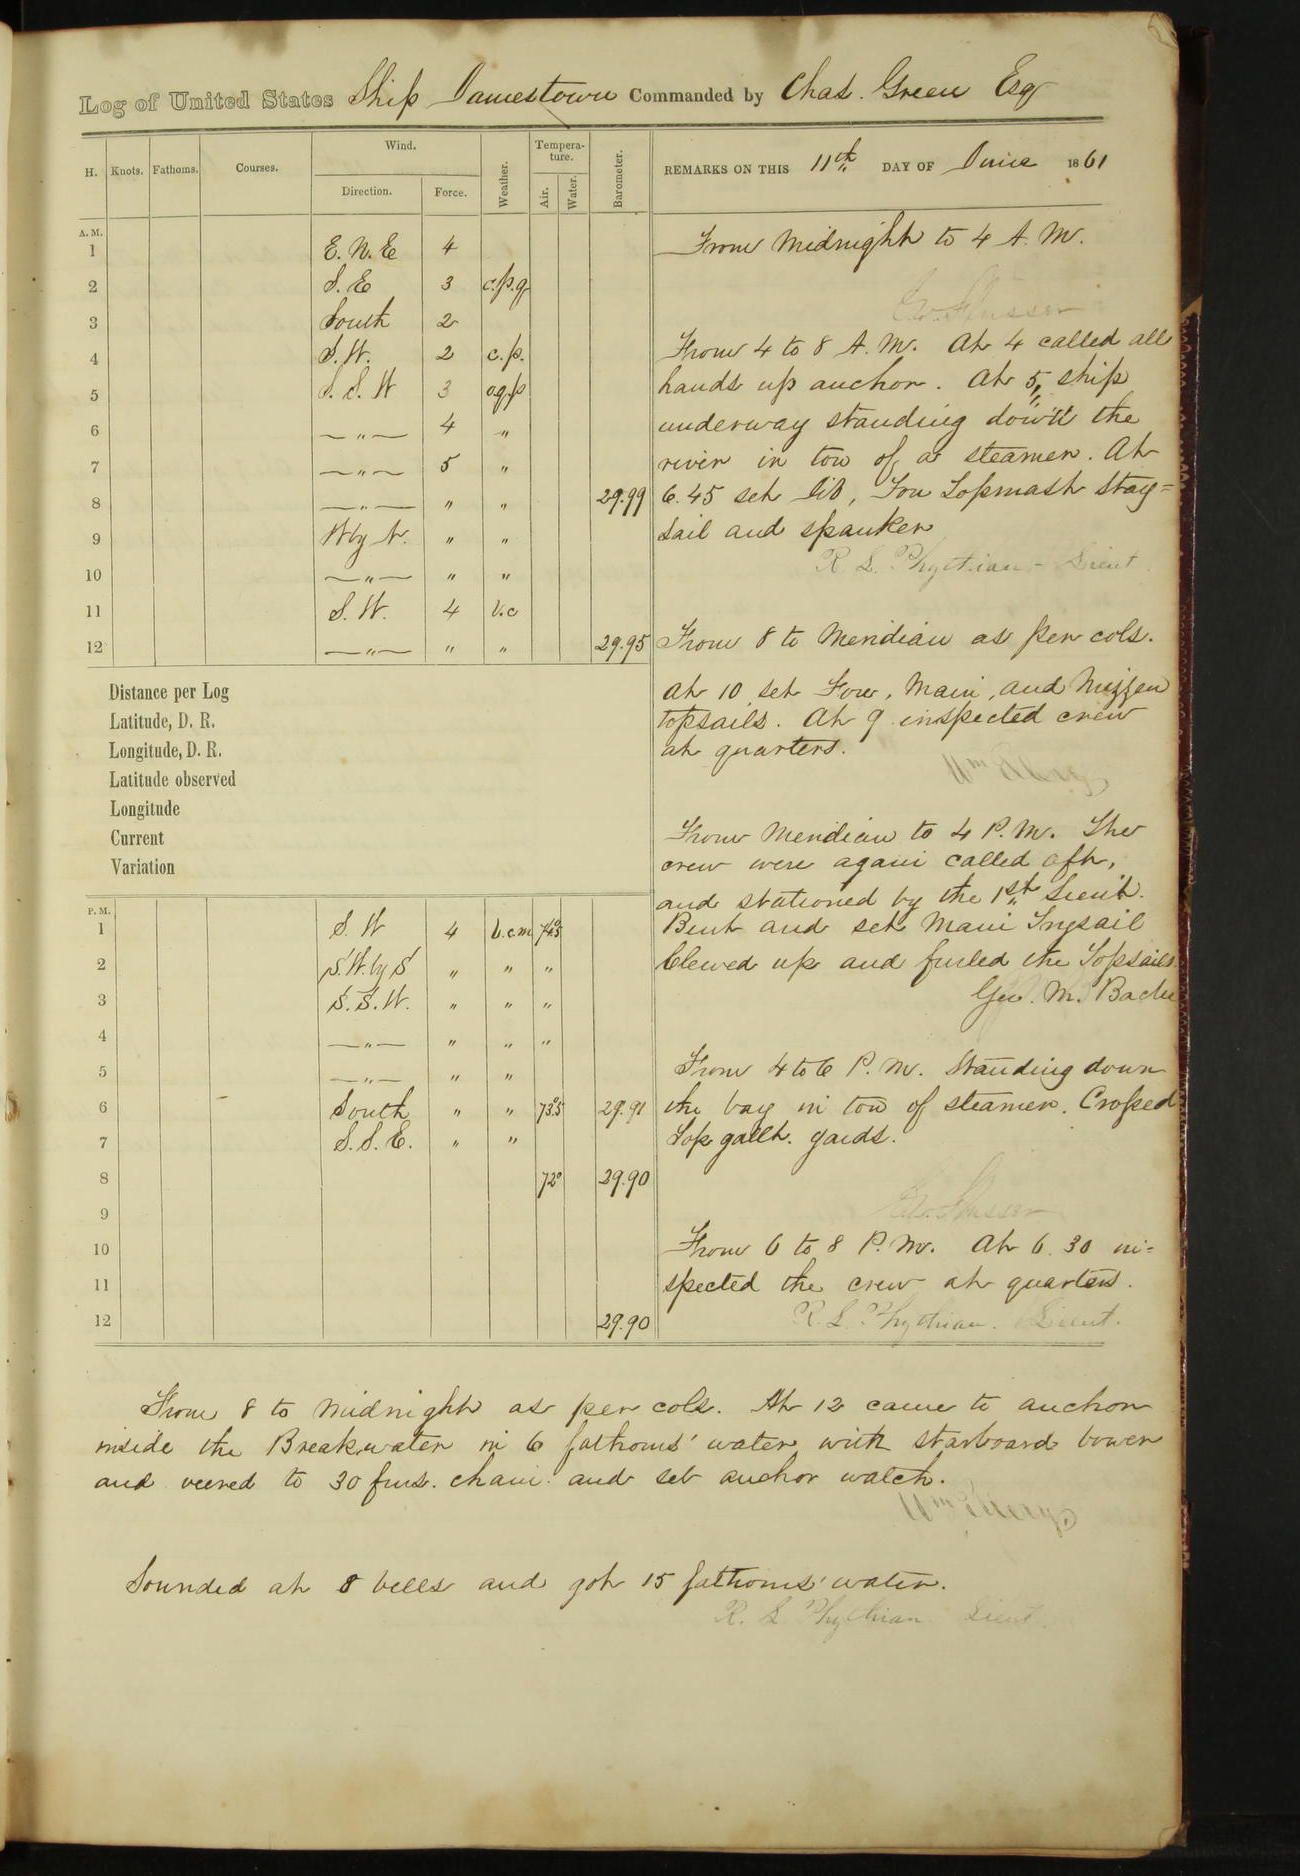 Log of United States Ship Jamestown Commanded by Chas. Green Esq
H. Knots. Fathoms. Courses. Wind. Direction. Force. Weather. Tempera-ture. Air. Water. Barometer.
REMARKS ON THIS 11th DAY OF June 1861
A.M.
1 E.N.E 4
2 S.E 3 c.p.q
3 South 2
4 S.W. 2 c.p.
5 S.S.W 3 o.q.p
6 — " — 4 "
7 — " — 5 "
8 — " — " " 29.99
9 W by N. " "
10 — " — " "
11 S.W. 4 b.c
12 — " — " " 29.95
From Midnight to 4 A.M.
From 4 to 8 A.M. At 4 called all
hands up anchor. At 5 ship
underway standing down the
river in tow of a steamer. At
6.45 set Jib, Fore Topmast Stay=
sail and spanker
R. L. Phythian - Lieut.
From 8 to Meridian as per cols.
At 10 set Fore, Main, and Mizzen
topsails. At 9 inspected crew
at quarters.
Distance per Log
Latitude, D. R.
Longitude, D. R.
Latitude observed
Longitude
Current
Variation
From Meridian to 4 P.M. The
crew were again called aft,
and stationed by the 1st Lieut.
Bent and set Main Trysail
Clewed up and furled the Topsails.
Geo. M. Bache
P.M.
1 S.W 4 b.c.m 74.5
2 S.W. by S " " "
3 S.S.W. " " "
4 — " — " " "
5 — " — " "
6 South " " 73.5 29.91
7 S.S.E. " "
8 72° 29.90
9
10
11
12 29.90
From 4 to 6 P.M. Standing down
the bay in tow of steamer. Crossed
Top gallt. yards.
From 6 to 8 P.M. At 6.30 in=
spected the crew at quarters.
R. L. Phythian. Lieut.
From 8 to Midnight as per cols. At 12 came to anchor
inside the Breakwater in 6 fathoms' water with starboard bower
and veered to 30 fms. chain and set anchor watch.
Sounded at 8 bells and got 15 fathoms' water.
R. L. Phythian Lieut.